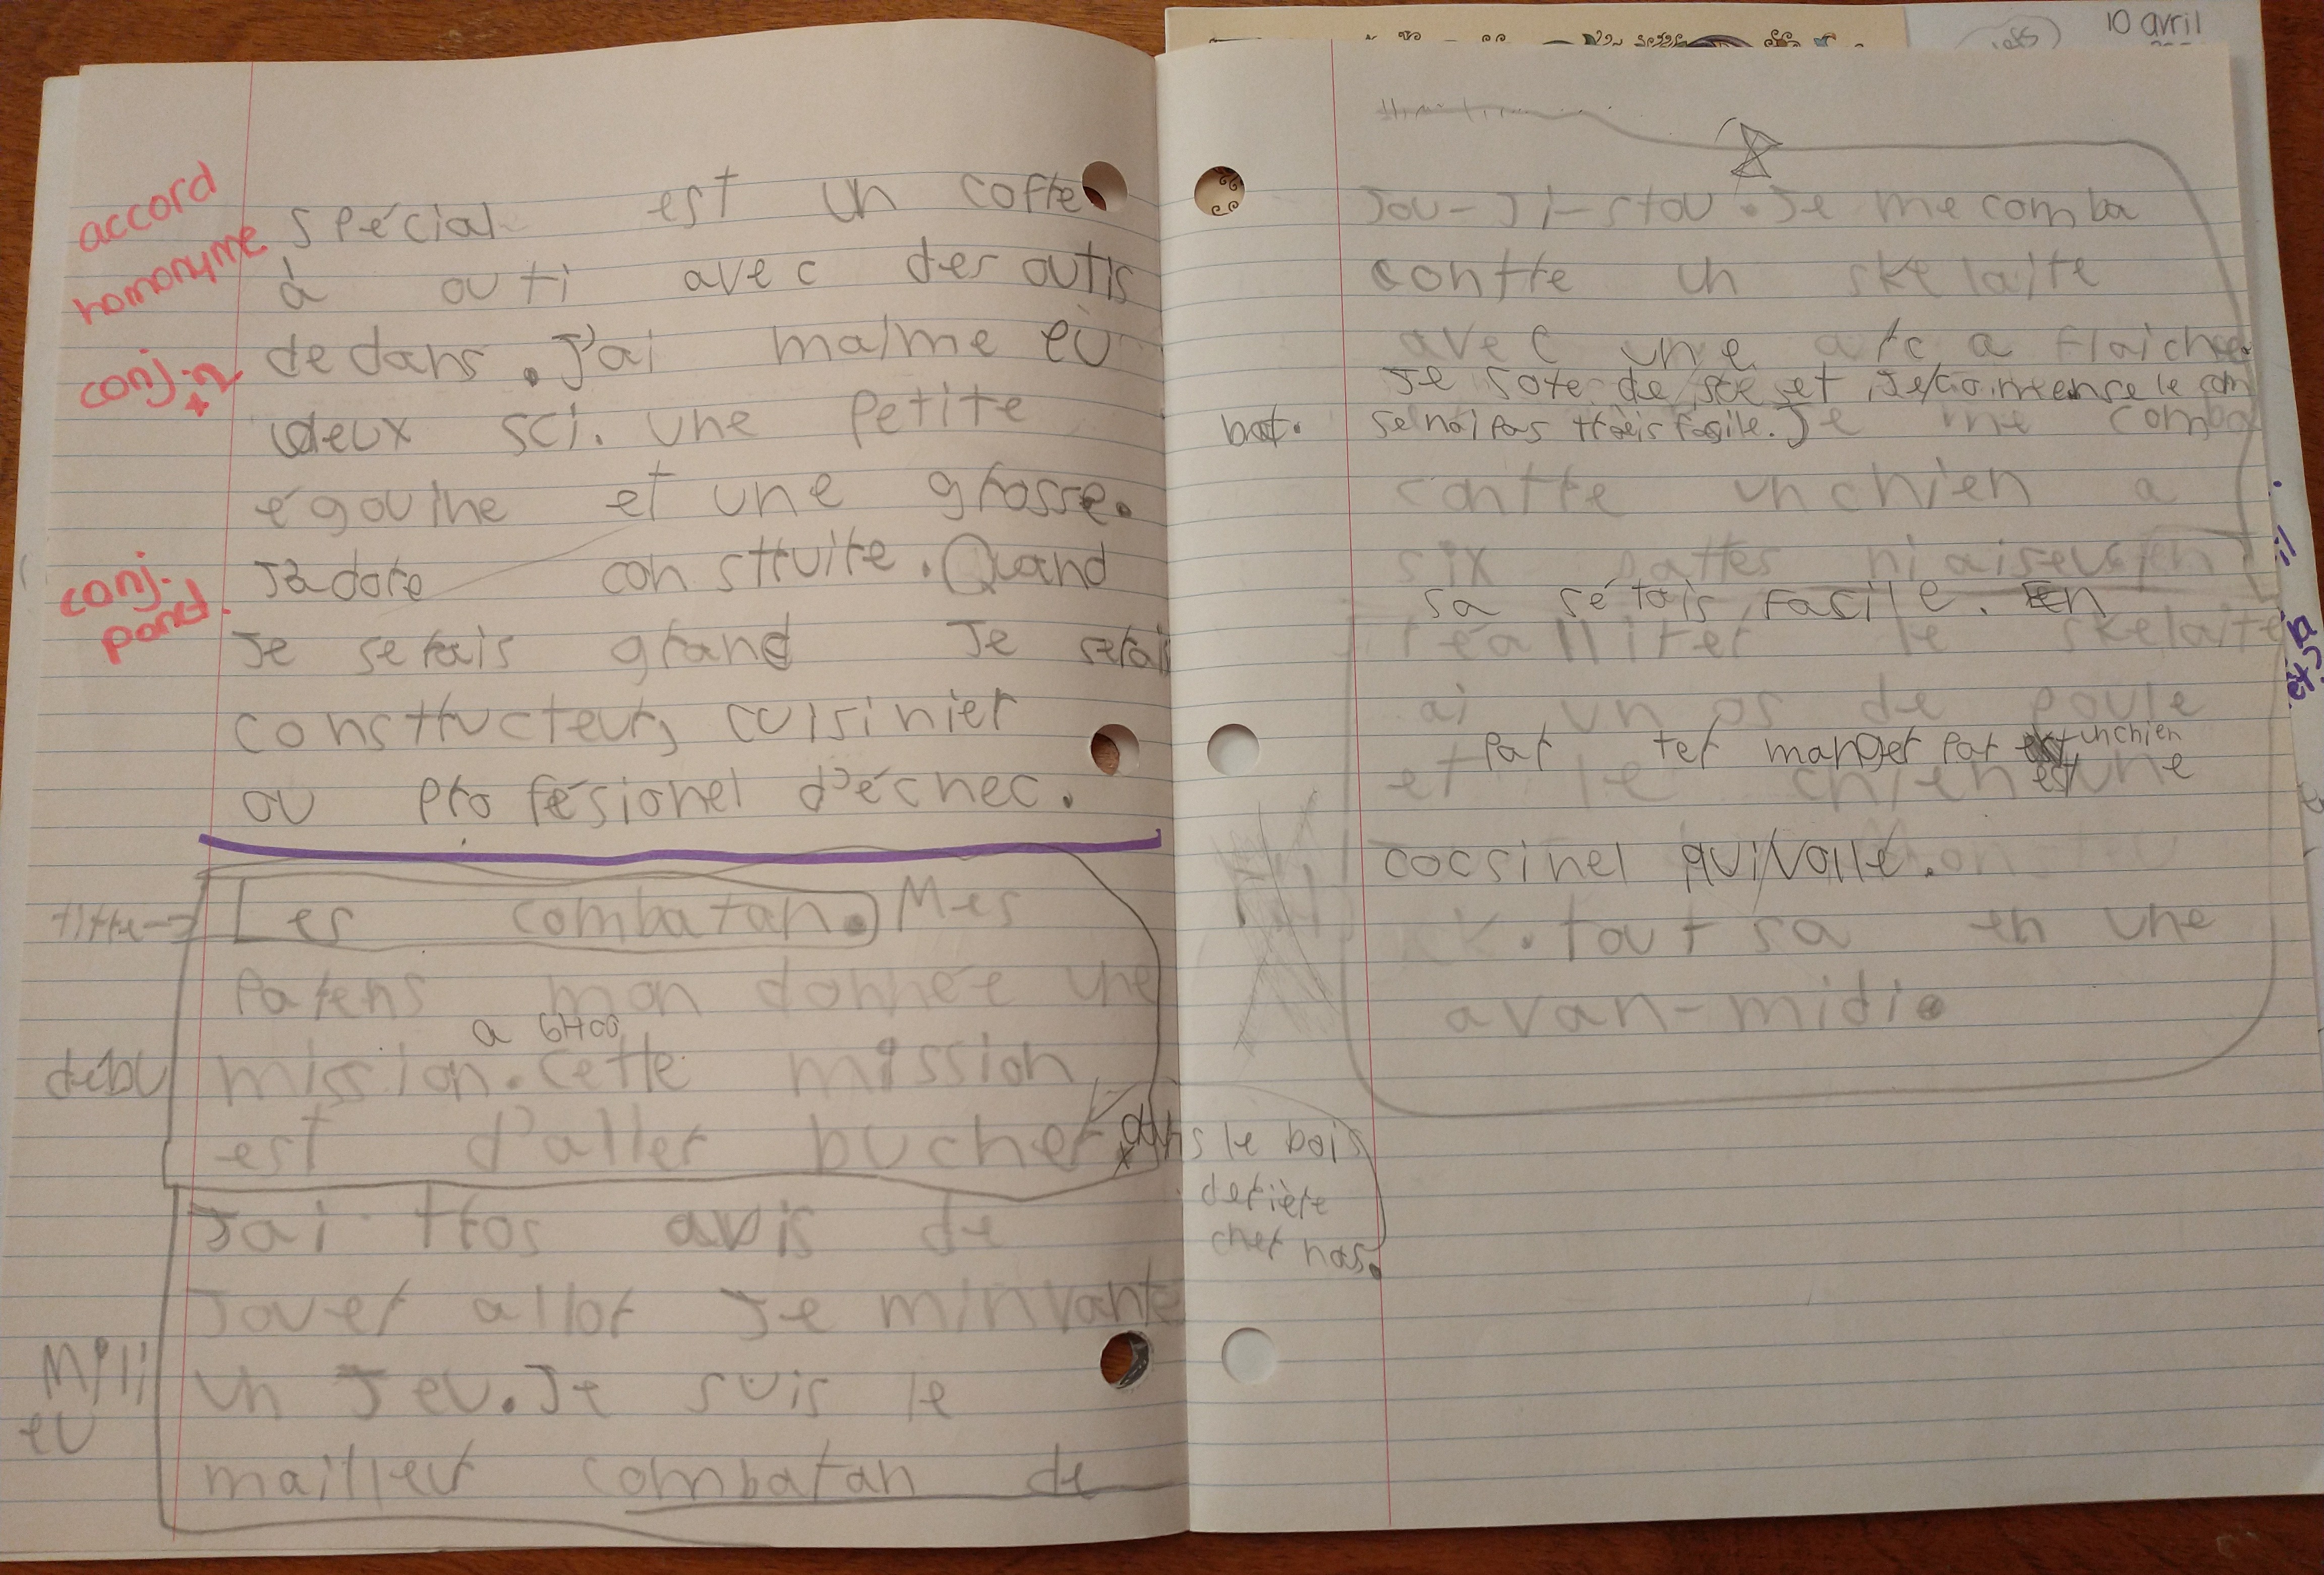 accord
homonyme
conj. x2
conj.
pond.
spécial est un coffre
à outi avec des outis
dedans. J'ai maime eu
deux sci. une petite
égouine et une grosse.
J'adore construire. Quand
Je serais grand Je serais
constructeur, cuisinier
ou profésionel d'échec.
titre→ Les combatan. Mes
parens mon donnée une
a 6H00
débu mission. cette mission
est d'aller bucher dans le bois
derière
cher nos.
Jai tros avis de
Jouer allor Je minvante
Mili
eu
un Jeu. Je suis le
mailleur combatan de
10 avril
Jou-Ji-stou. Je me comba
contre un skelaite
avec une arc a flaiche.
Je sote de
et Je comense le com
bat. se nai pas trais fasile. Je me comba
contre un chien a
six pattes
sa sétais facile. En
réalliter le skelaite
ai un os de poule
par ter manger par un chien
et le chien est une
cocsinel qui vole.
tout sa en une
avan-midi.